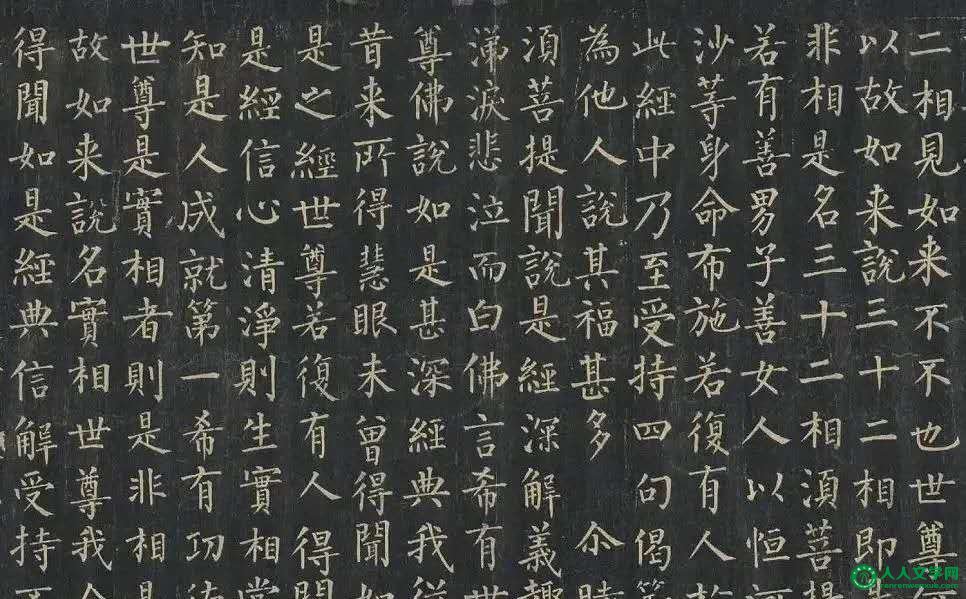 二相見如来不不也世尊
以故如来說三十二相即
非相是名三十二相湏菩提
若有善男子善女人以恒
沙等身命布施若復有人
此經中乃至受持四句偈
為他人說其福甚多 尒時
湏菩提聞說是經深解義趣
涕淚悲泣而白佛言希有世
尊佛說如是甚深經典我從
昔来所得慧眼未曾得聞如
是之經世尊若復有人得聞
是經信心清淨則生實相當
知是人成就第一希有功德
世尊是實相者則是非相是
故如来說名實相世尊我今
得聞如是經典信解受持
人人文字网
renrenwenxue.com